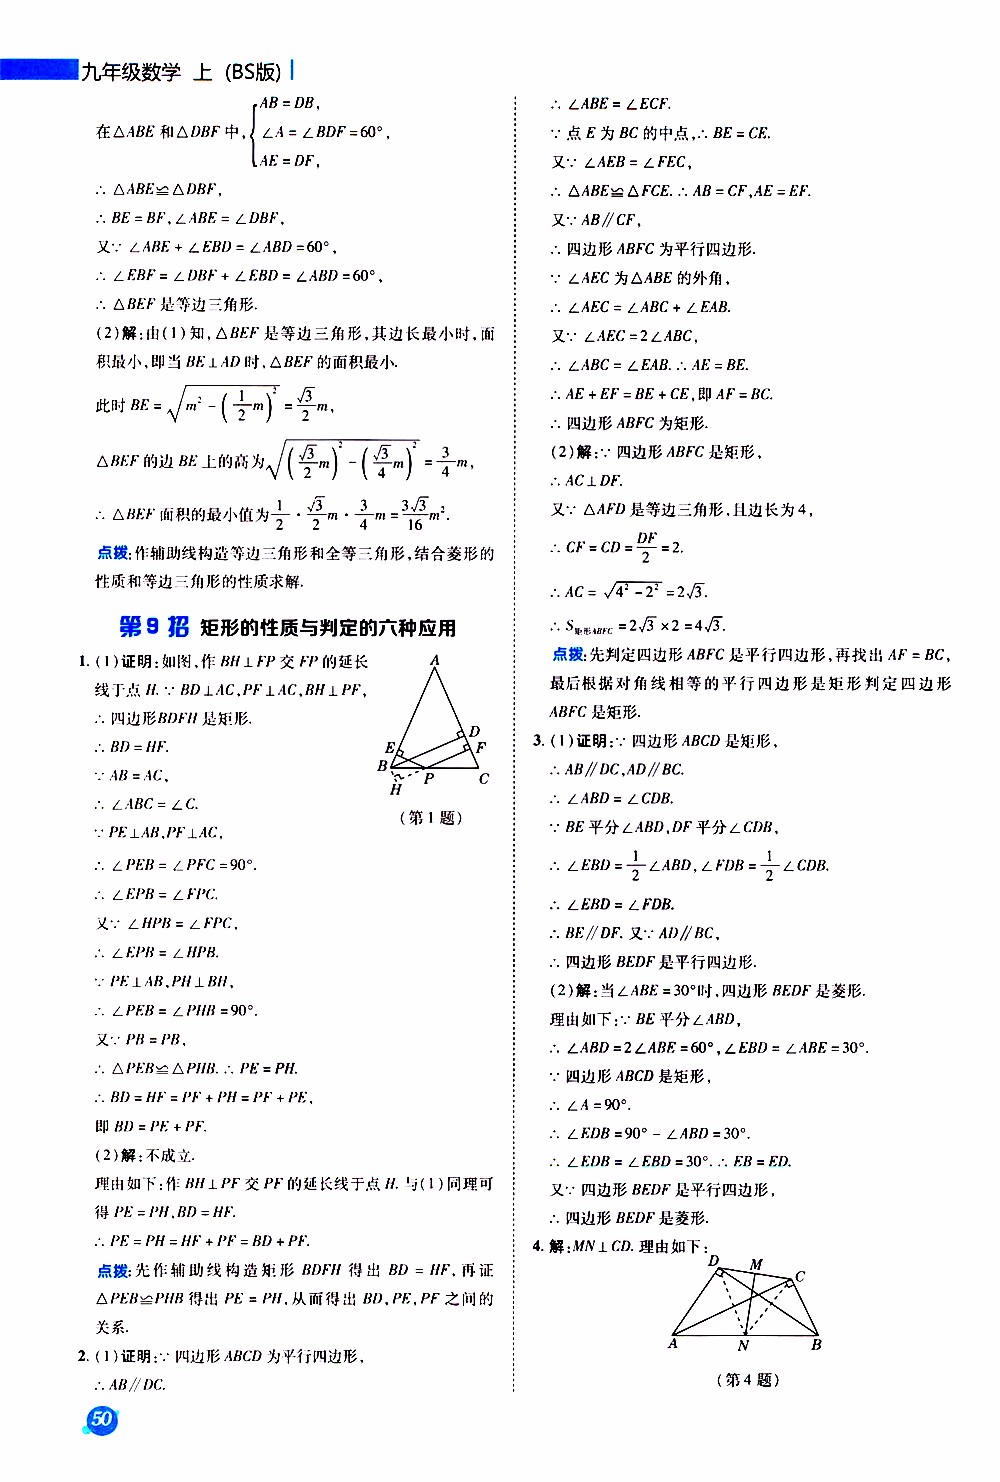 九年级数学 上 (BS版)
在△ABE 和△DBF 中,{AB = DB,
∠A = ∠BDF = 60°,
AE = DF,
∴ △ABE≌△DBF,
∴ BE = BF,∠ABE = ∠DBF,
又∵ ∠ABE + ∠EBD = ∠ABD = 60°,
∴ ∠EBF = ∠DBF + ∠EBD = ∠ABD = 60°,
∴ △BEF 是等边三角形.
(2)解:由(1)知,△BEF 是等边三角形,其边长最小时,面
积最小,即当 BE⊥AD 时,△BEF 的面积最小.
此时 BE = √(m² - (1/2 m)²) = √3/2 m,
△BEF 的边 BE 上的高为√((√3/2 m)² - (√3/4 m)²) = 3/4 m,
∴ △BEF 面积的最小值为 1/2 · √3/2 m · 3/4 m = 3√3/16 m².
点拨:作辅助线构造等边三角形和全等三角形,结合菱形的
性质和等边三角形的性质求解.
第 9 招 矩形的性质与判定的六种应用
1. (1)证明:如图,作 BH⊥FP 交 FP 的延长
线于点 H. ∵ BD⊥AC,PF⊥AC,BH⊥PF,
∴ 四边形BDFH 是矩形.
∴ BD = HF.
∵ AB = AC,
∴ ∠ABC = ∠C.
∵ PE⊥AB,PF⊥AC,
∴ ∠PEB = ∠PFC = 90°.
∴ ∠EPB = ∠FPC.
又∵ ∠HPB = ∠FPC,
∴ ∠EPB = ∠HPB.
∵ PE⊥AB,PH⊥BH,
∴ ∠PEB = ∠PHB = 90°.
又∵ PB = PB,
∴ △PEB≌△PHB. ∴ PE = PH.
∴ BD = HF = PF + PH = PF + PE,
即 BD = PE + PF.
A
D
E
F
B
P
C
H
(第 1 题)
(2)解:不成立.
理由如下:作 BH⊥PF 交 PF 的延长线于点 H. 与(1)同理可
得 PE = PH,BD = HF.
∴ PE = PH = HF + PF = BD + PF.
点拨:先作辅助线构造矩形 BDFH 得出 BD = HF,再证
△PEB≌PHB 得出 PE = PH,从而得出 BD,PE,PF 之间的
关系.
2. (1)证明:∵ 四边形 ABCD 为平行四边形,
∴ AB∥DC.
∴ ∠ABE = ∠ECF.
∵ 点 E 为 BC 的中点,∴ BE = CE.
又∵ ∠AEB = ∠FEC,
∴ △ABE≌△FCE. ∴ AB = CF,AE = EF.
又∵ AB∥CF,
∴ 四边形 ABFC 为平行四边形.
∵ ∠AEC 为△ABE 的外角,
∴ ∠AEC = ∠ABC + ∠EAB.
又∵ ∠AEC = 2∠ABC,
∴ ∠ABC = ∠EAB. ∴ AE = BE.
∴ AE + EF = BE + CE,即 AF = BC.
∴ 四边形 ABFC 为矩形.
(2)解:∵ 四边形 ABFC 是矩形,
∴ AC⊥DF.
又∵ △AFD 是等边三角形,且边长为 4,
∴ CF = CD = DF/2 = 2.
∴ AC = √(4² - 2²) = 2√3.
∴ S矩形ABFC = 2√3 × 2 = 4√3.
点拨:先判定四边形 ABFC 是平行四边形,再找出 AF = BC,
最后根据对角线相等的平行四边形是矩形判定四边形
ABFC 是矩形.
3. (1)证明:∵ 四边形 ABCD 是矩形,
∴ AB∥DC,AD∥BC.
∴ ∠ABD = ∠CDB.
∵ BE 平分∠ABD,DF 平分∠CDB,
∴ ∠EBD = 1/2 ∠ABD,∠FDB = 1/2 ∠CDB.
∴ ∠EBD = ∠FDB.
∴ BE∥DF. 又∵ AD∥BC,
∴ 四边形 BEDF 是平行四边形.
(2)解:当∠ABE = 30°时,四边形 BEDF 是菱形.
理由如下:∵ BE 平分∠ABD,
∴ ∠ABD = 2∠ABE = 60°,∠EBD = ∠ABE = 30°.
∵ 四边形 ABCD 是矩形,
∴ ∠A = 90°.
∴ ∠EDB = 90° - ∠ABD = 30°.
∴ ∠EDB = ∠EBD = 30°. ∴ EB = ED.
又∵ 四边形 BEDF 是平行四边形,
∴ 四边形 BEDF 是菱形.
4. 解:MN⊥CD. 理由如下:
D
M
C
A
N
B
(第 4 题)
50